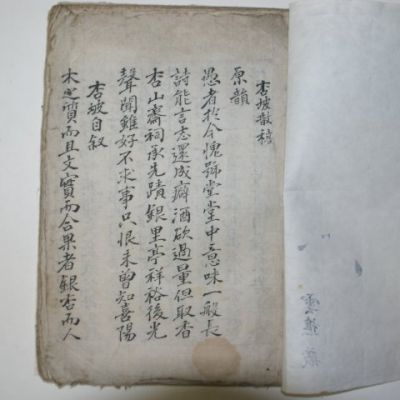 杏坡散稿
原韻
愚者於今愧號堂堂中意味一般長
詩能言志還成癖酒欲過量但取香
杏山齋祠承先蹟銀里亭祥裕後光
聲聞雖好不求事只恨未曾知喜陽
杏坡自叙
木之質而且文實而合果者銀杏而人